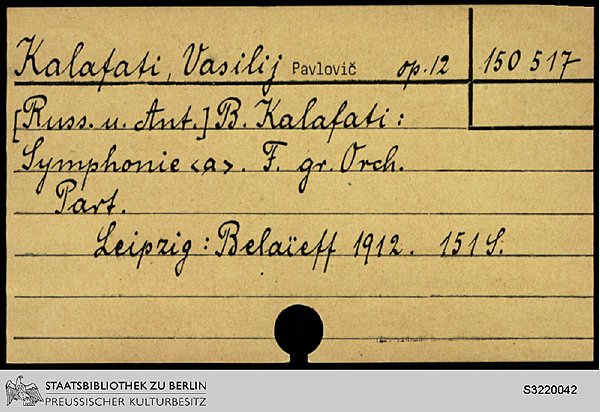 Kalafati, Vasilij Pavlovič op. 12 150 517
[Russ. u. Ant.] B. Kalafati :
Symphonie <a>. F. gr. Orch.
Part.
Leipzig : Belaïeff 1912. 151 S.
STAATSBIBLIOTHEK ZU BERLIN
PREUSSISCHER KULTURBESITZ
S3220042